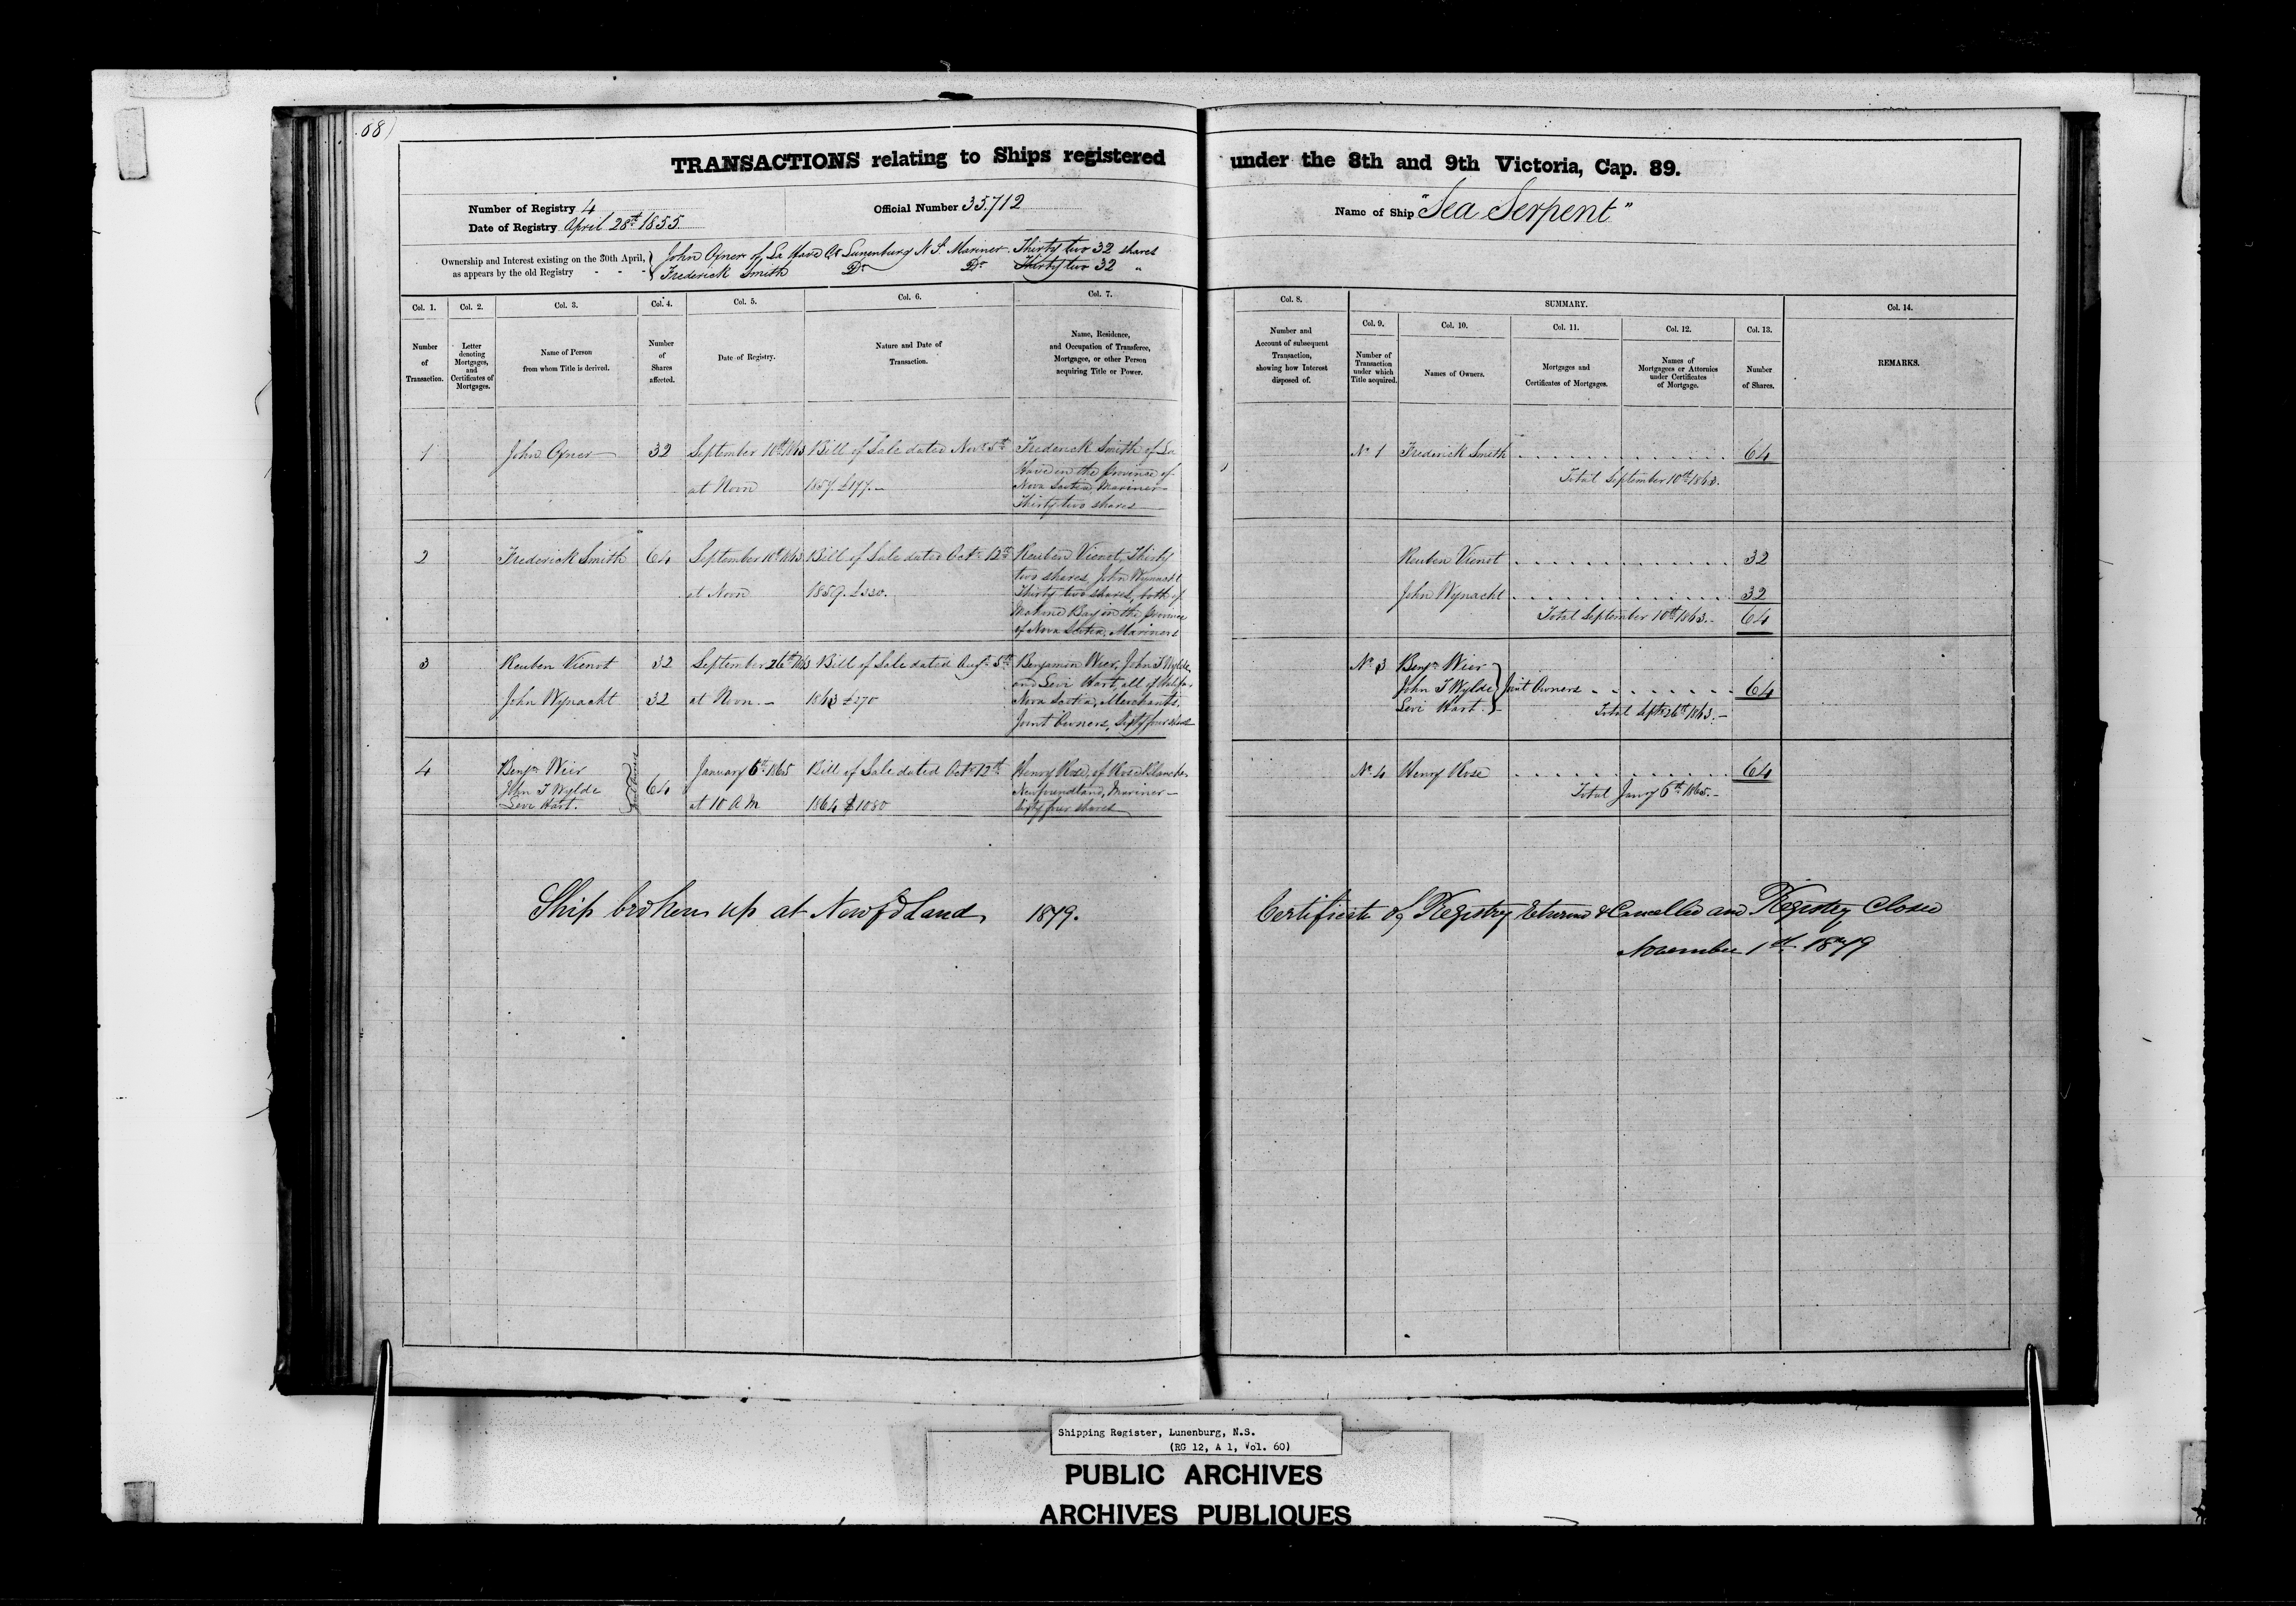 68)
TRANSACTIONS relating to Ships registered under the 8th and 9th Victoria, Cap. 89.
Number of Registry 4
Official Number 35.712
Name of Ship "Sea Serpent"
Date of Registry April 28th 1855
Ownership and Interest existing on the 30th April, as appears by the old Registry - - -
John Ofner of La Have Co Lunenburg N S. Mariner Thirty two 32 shares
Frederick Smith Do Do Thirty two 32 "
Col. 1. Number of Transaction.
Col. 2. Letter denoting Mortgages, and Certificates of Mortgages.
Col. 3. Name of Person from whom Title is derived.
Col. 4. Number of Shares affected.
Col. 5. Date of Registry.
Col. 6. Nature and Date of Transaction.
Col. 7. Name, Residence, and Occupation of Transferee, Mortgagee, or other Person acquiring Title or Power.
Col. 8. Number and Account of subsequent Transaction, showing how Interest disposed of.
SUMMARY.
Col. 9. Number of Transaction under which Title acquired.
Col. 10. Names of Owners.
Col. 11. Mortgages and Certificates of Mortgages.
Col. 12. Names of Mortgagees or Attornies under Certificates of Mortgage.
Col. 13. Number of Shares.
Col. 14. REMARKS.
1 John Ofner 32 September 10th 1863 Bill of Sale dated Novr 5th Frederick Smith of La
Have in the Province of
at Noon 1857 £177.-
Nova Scotia, Mariner
Thirty two shares
No 1 Frederick Smith 64
Total September 10th 1863.
2 Frederick Smith 64 September 10th 1863 Bill of Sale dated Octr 12th Reuben Vienot, Thirty
two shares, John Wynacht
at Noon 1859. £330.
Thirty two shares, both of
Mahone Bay in the Province
of Nova Scotia, Mariners
Reuben Vienot 32
John Wynacht 32
Total September 10th 1863. 64
3 Reuben Vienot 32 September 26th 1863 Bill of Sale dated Augt 5th Benjamin Wier, John T Wylde
and Levi Hart, all of Halifax
John Wynacht 32 at Noon.- 1863 £270
Nova Scotia, Merchants,
Joint Owners, Sixty four shares
No 3 Benjn Wier
John T Wylde Joint Owners 64
Levi Hart
Total Septr 26th 1863.-
4 Benjn Wier
John T Wylde
Levi Hart.
Joint Owners
64
January 6th 1865
at 10 A M
Bill of Sale dated Octr 12th
1864 $1080
Henry Rose, of Rose Blanche
Newfoundland, Mariner -
Sixty four shares
No 4 Henry Rose 64
Total Jany 6th 1865.-
Ship broken up at Newfdland, 1879.
Certificate of Registry & Cancelled and Registry Closed
November 1st 1879
Shipping Register, Lunenburg, N.S.
(RG 12, A 1, Vol. 60)
PUBLIC ARCHIVES
ARCHIVES PUBLIQUES